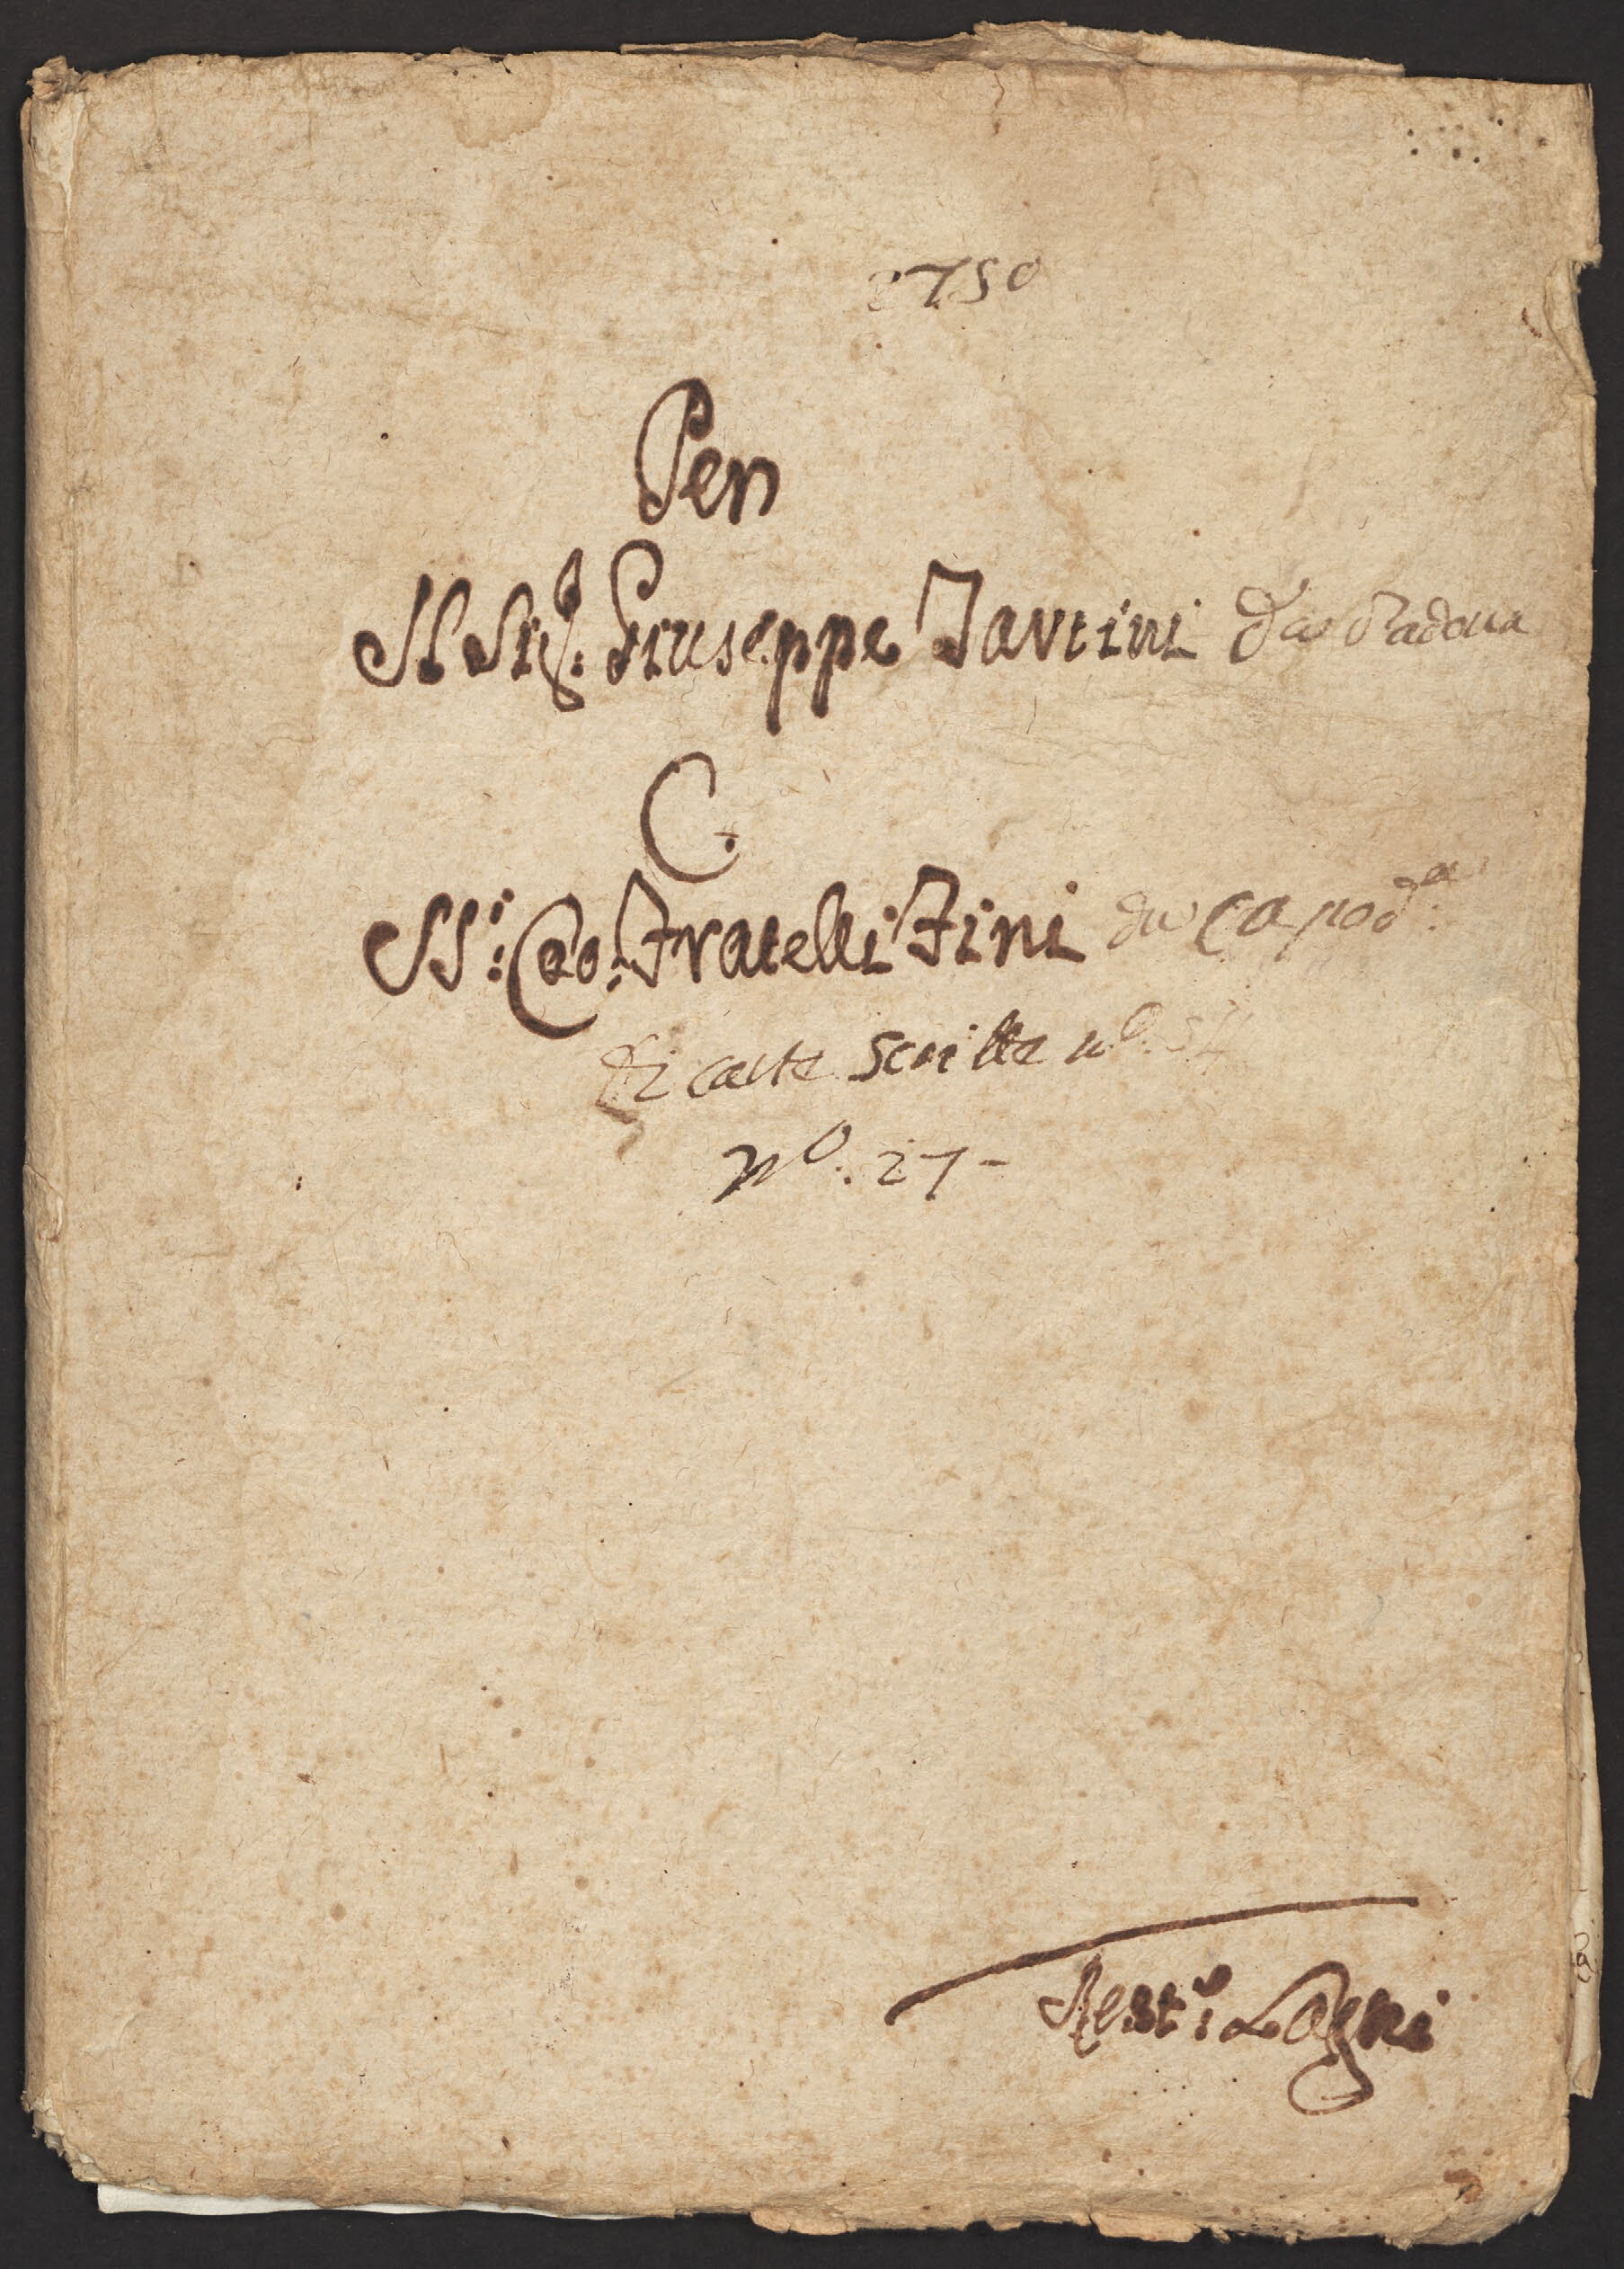 1750
Per
Il Sig.r Giuseppe Tartini da Padoua
C.
SS:i Co: Fratelli Fini da Capod:a
di carte scritte n.o 54
No. 27-
Nest:o Zogni